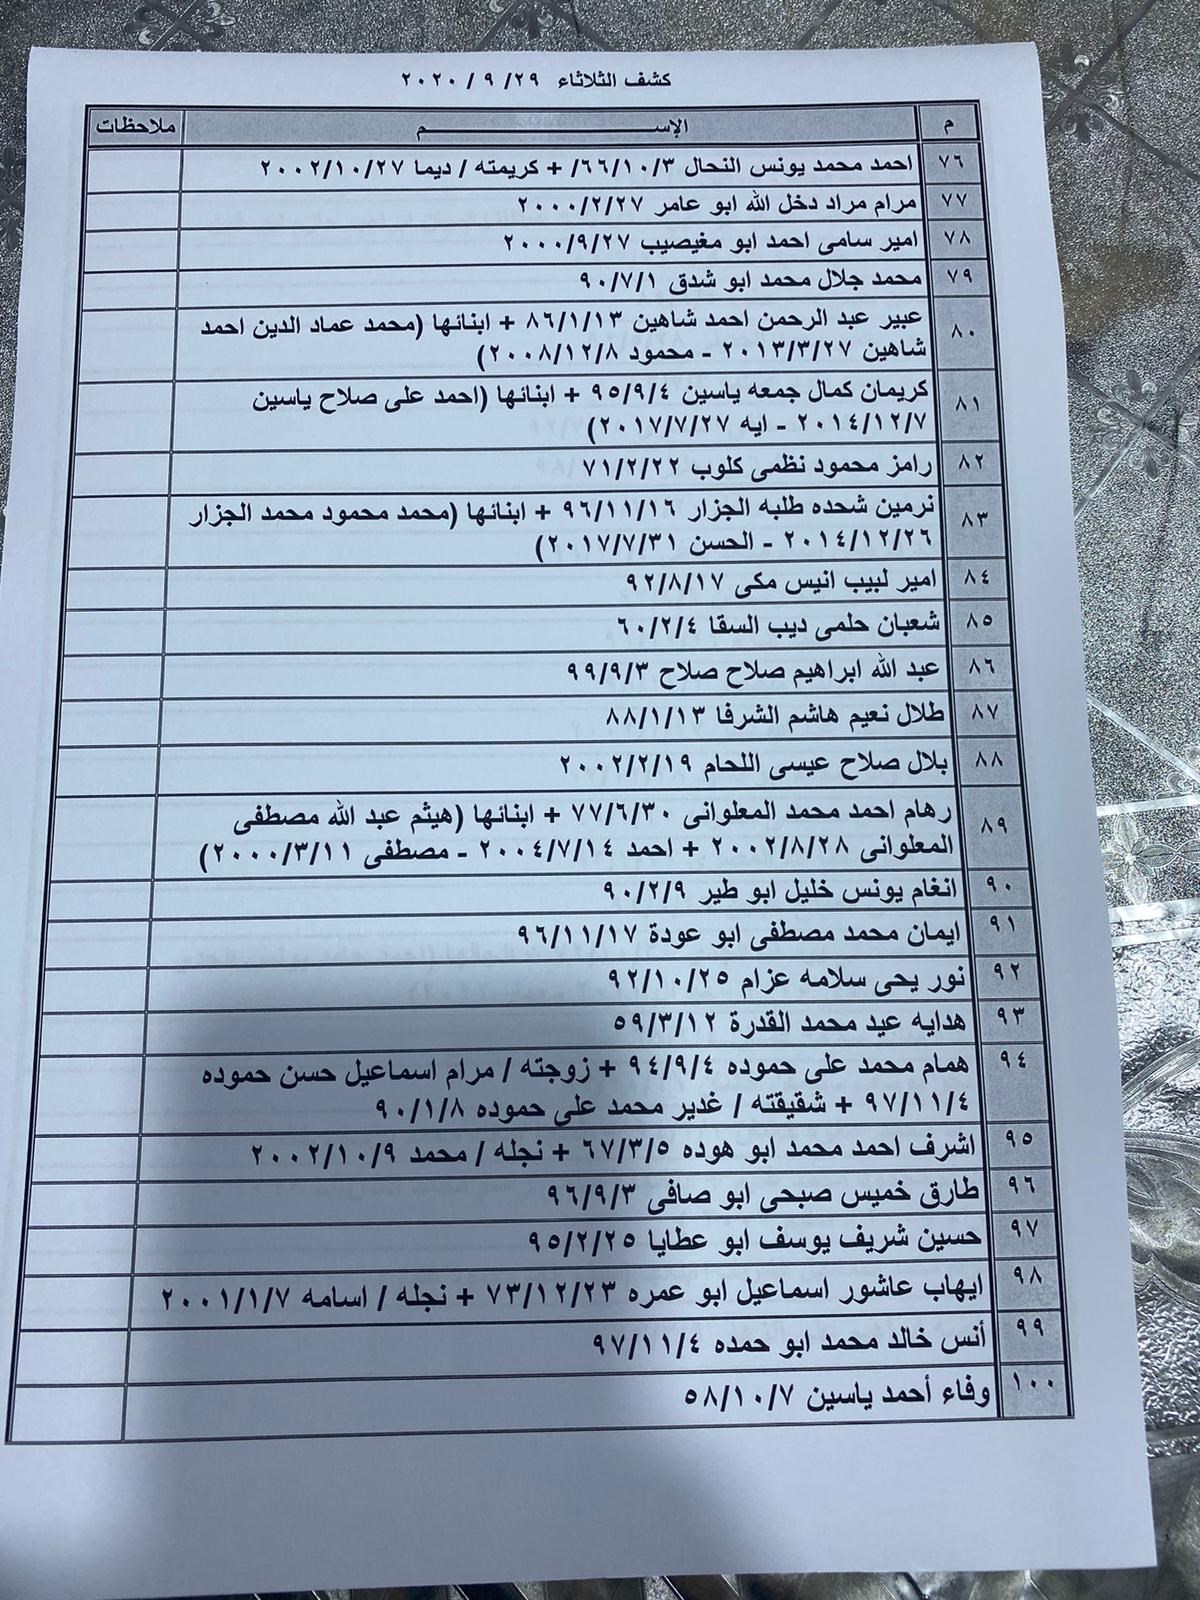 كشف الثلاثاء ٢٩/ ٩ / ٢٠٢٠
م الإســـــم ملاحظات
٧٦ احمد محمد يونس النحال ٦٦/١٠/٣/ + كريمته / ديما ٢٠٠٢/١٠/٢٧
٧٧ مرام مراد دخل الله ابو عامر ٢٠٠٠/٢/٢٧
٧٨ امير سامى احمد ابو مغيصيب ٢٠٠٠/٩/٢٧
٧٩ محمد جلال محمد ابو شدق ٩٠/٧/١
٨٠ عبير عبد الرحمن احمد شاهين ٨٦/١/١٣ + ابنائها (محمد عماد الدين احمد
شاهين ٢٠١٣/٣/٢٧ - محمود ٢٠٠٨/١٢/٨)
٨١ كريمان كمال جمعه ياسين ٩٥/٩/٤ + ابنائها (احمد على صلاح ياسين
٢٠١٤/١٢/٧ - ايه ٢٠١٧/٧/٢٧)
٨٢ رامز محمود نظمى كلوب ٧١/٢/٢٢
٨٣ نرمين شحده طلبه الجزار ٩٦/١١/١٦ + ابنائها (محمد محمود محمد الجزار
٢٠١٤/١٢/٢٦ - الحسن ٢٠١٧/٧/٣١)
٨٤ امير لبيب انيس مكى ٩٢/٨/١٧
٨٥ شعبان حلمى ديب السقا ٦٠/٢/٤
٨٦ عبد الله ابراهيم صلاح صلاح ٩٩/٩/٣
٨٧ طلال نعيم هاشم الشرفا ٨٨/١/١٣
٨٨ بلال صلاح عيسى اللحام ٢٠٠٢/٢/١٩
٨٩ رهام احمد محمد المعلوانى ٧٧/٦/٣٠ + ابنائها (هيثم عبد الله مصطفى
المعلوانى ٢٠٠٢/٨/٢٨ + احمد ٢٠٠٤/٧/١٤ - مصطفى ٢٠٠٠/٣/١١)
٩٠ انغام يونس خليل ابو طير ٩٠/٢/٩
٩١ ايمان محمد مصطفى ابو عودة ٩٦/١١/١٧
٩٢ نور يحى سلامه عزام ٩٢/١٠/٢٥
٩٣ هدايه عيد محمد القدرة ٥٩/٣/١٢
٩٤ همام محمد على حموده ٩٤/٩/٤ + زوجته / مرام اسماعيل حسن حموده
٩٧/١١/٤ + شقيقته / غدير محمد على حموده ٩٠/١/٨
٩٥ اشرف احمد محمد ابو هوده ٦٧/٣/٥ + نجله / محمد ٢٠٠٢/١٠/٩
٩٦ طارق خميس صبحى ابو صافى ٩٦/٩/٣
٩٧ حسين شريف يوسف ابو عطايا ٩٥/٢/٢٥
٩٨ ايهاب عاشور اسماعيل ابو عمره ٧٣/١٢/٢٣ + نجله / اسامه ٢٠٠١/١/٧
٩٩ أنس خالد محمد ابو حمده ٩٧/١١/٤
١٠٠ وفاء أحمد ياسين ٥٨/١٠/٧